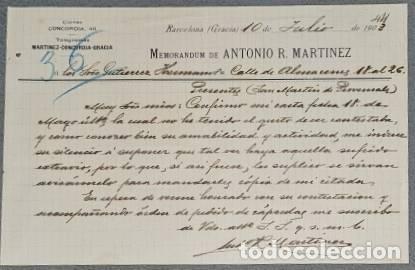 Correo
CONCORDIA, 40
Telegramas
MARTINEZ-CONCORDIA-GRACIA
Barcelona (Gracia) 10 de Julio de 1903
MEMORANDUM DE ANTONIO R. MARTINEZ
á los Sres Gutierrez Hermanos Calle de Almacenes 18 al 26.
Presentes (San Martin de Provensals)
Muy Sres mios: Confirmo mi carta fecha 18 de
Mayo últº, la cual no he tenido el gusto de ver contestada,
y como conozco bien su amabilidad y actividad, me induce
su silencio á suponer que tal vez haya aquella sufrido
extravio, por lo que, si asi fuese, les suplico se sirvan
avisarmelo para mandarles copia de mi citada.
En espera de verme honrado con su contestacion y
acompañando órden de pedido de cápsulas me suscribo
de Vds. S. S. q. s. m. b.
Antº R. Martinez
todocoleccion